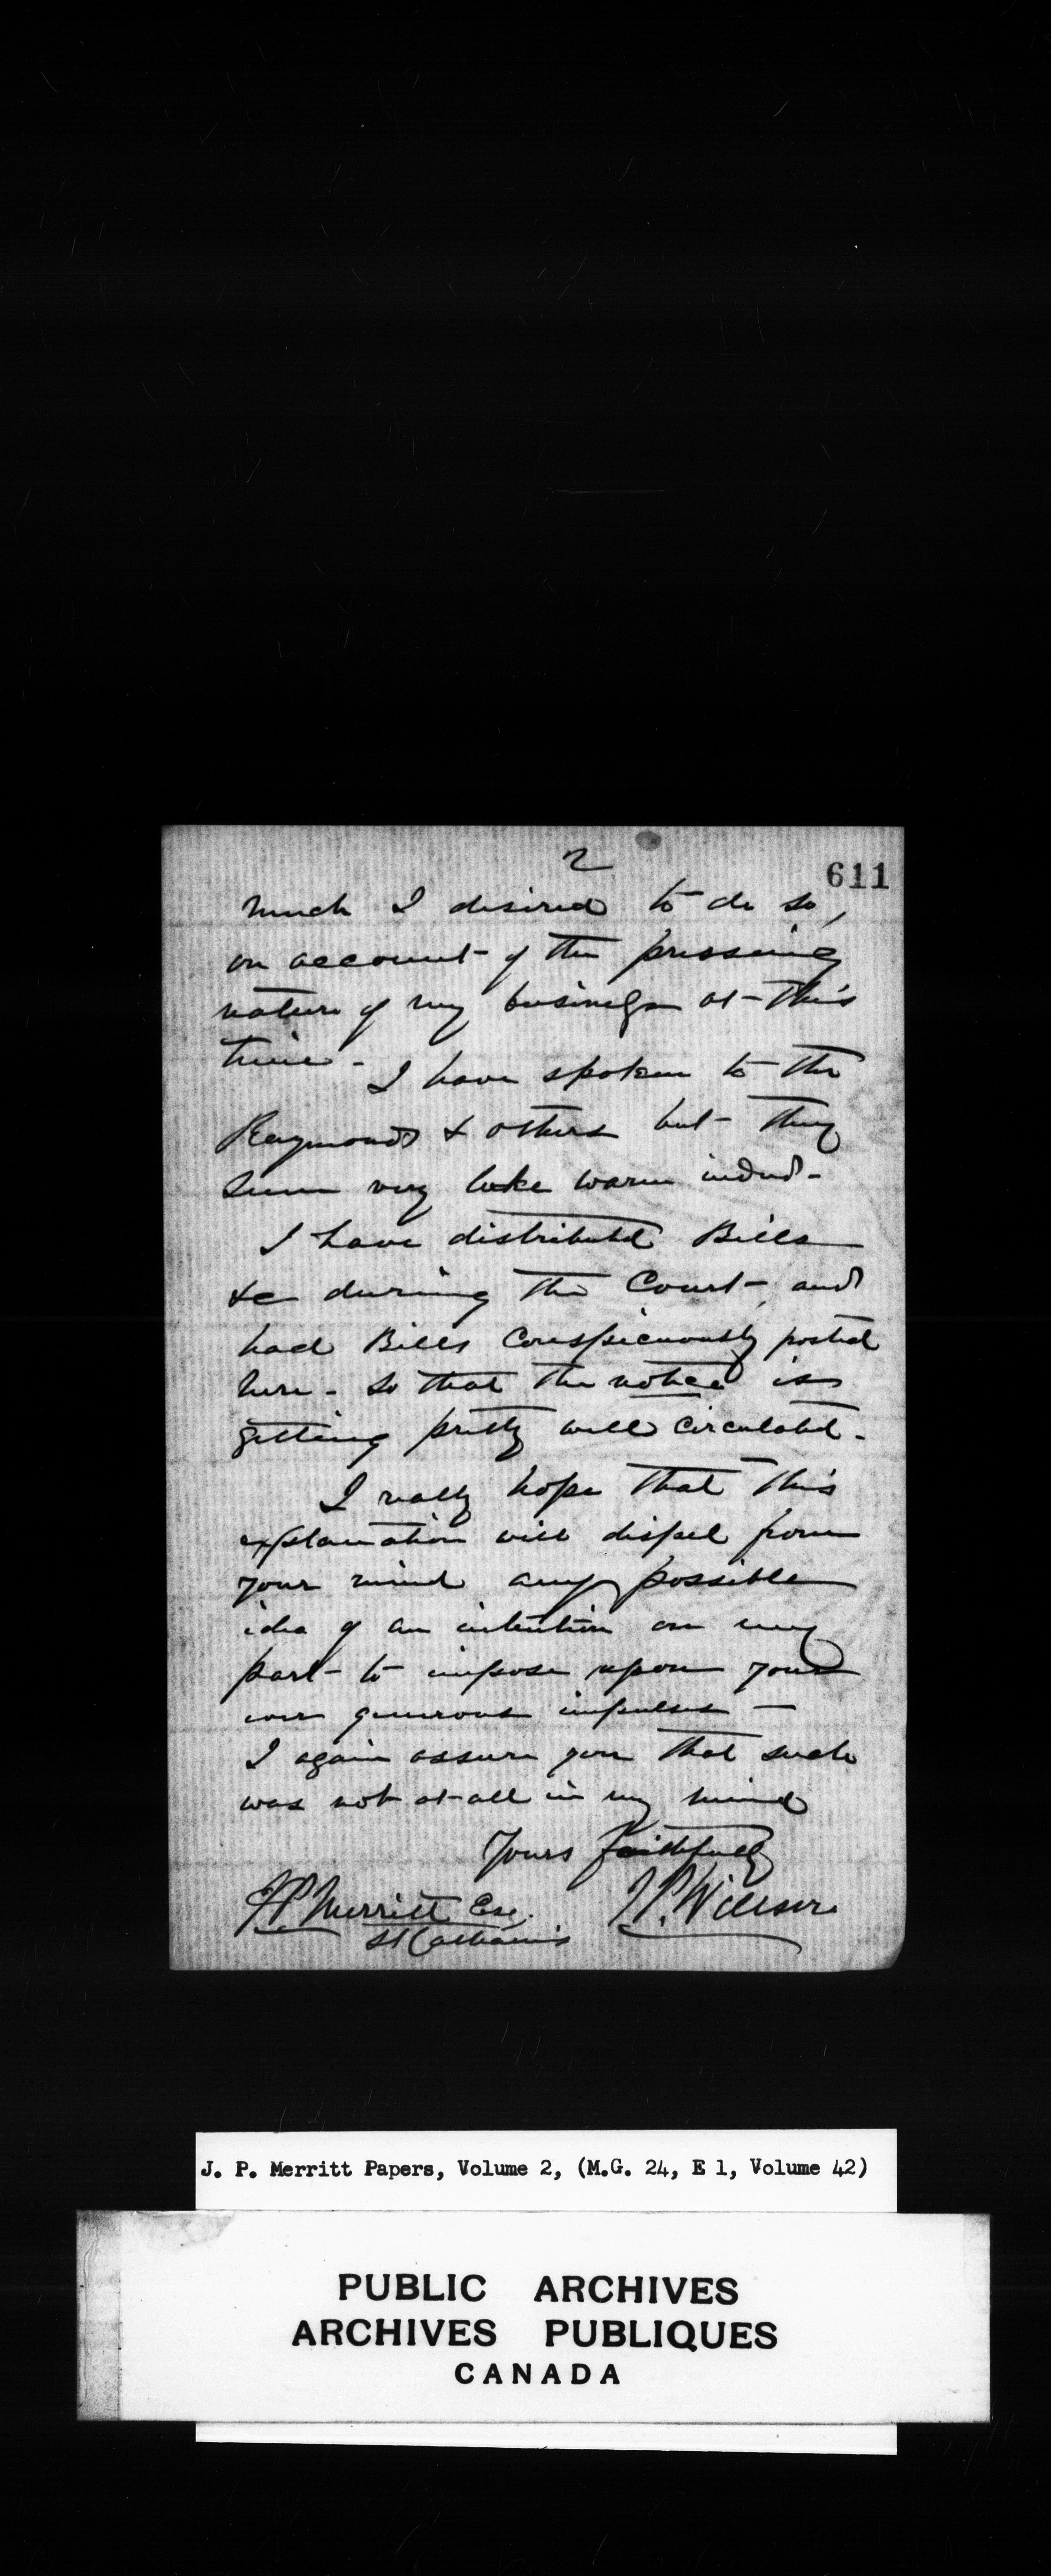 2
611
much I desired to do so,
on account of the pressing
nature of my business at this
time - I have spoken to the
Raymonds & others but they
seem very luke warm indeed -
I have distributed Bills
&c during the Court, and
had Bills conspicuously posted
here - so that the notice is
getting pretty well circulated -
I really hope that this
explanation will dispel from
your mind any possible
idea of an intention on my
part to impose upon your
own generous impulses -
I again assure you that such
was not at all in my mind
Yours faithfully
J.P. Merritt Esq. J.P. Willson
St Catharines
J. P. Merritt Papers, Volume 2, (M.G. 24, E 1, Volume 42)
PUBLIC ARCHIVES
ARCHIVES PUBLIQUES
CANADA